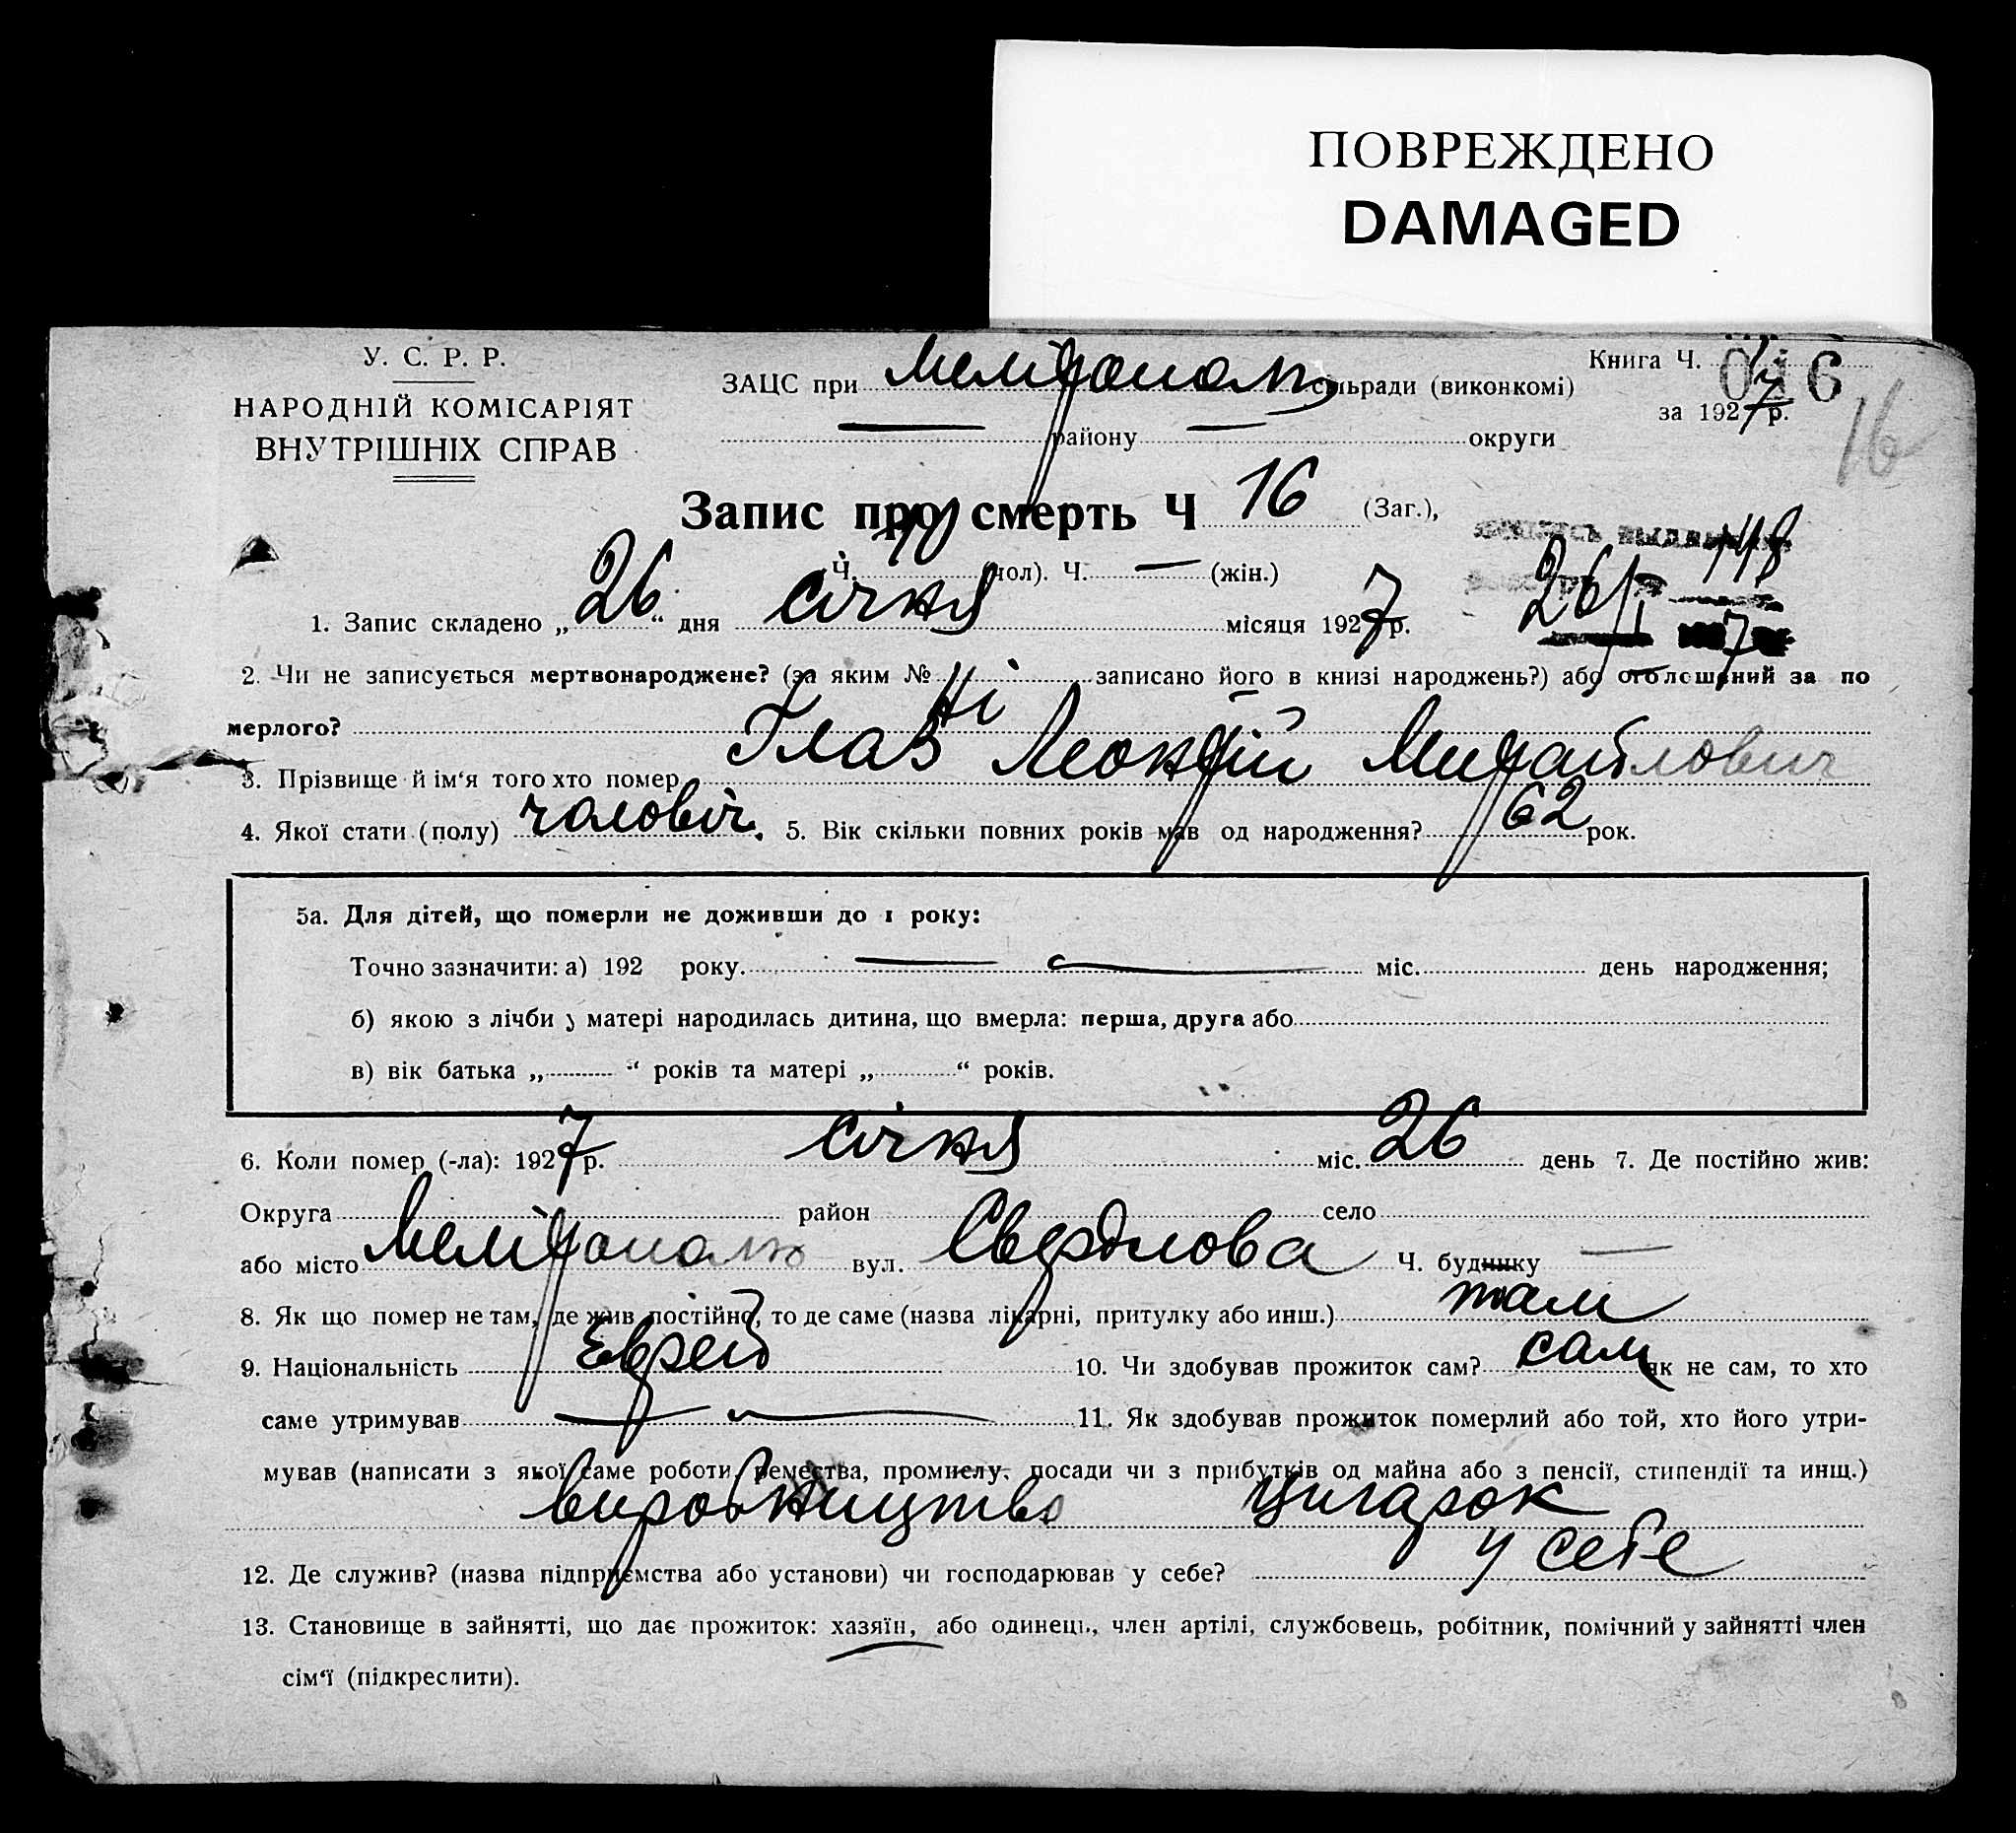 ПОВРЕЖДЕНО
DAMAGED
У. С. Р. Р.
НАРОДНІЙ КОМІСАРІЯТ
ВНУТРІШНІХ СПРАВ
ЗАЦС при Мелітополь сільради (виконкомі)
району — округи
Книга Ч.
016
за 1927 р.
16
Запис про смерть Ч 16 (Заг.),
Ч. 10 (чол). Ч. — (жін.)
148
26/I 7
1. Запис складено „26“ дня січня місяця 1927 р.
2. Чи не записується мертвонароджене? (за яким № Ні записано його в книзі народжень?) або оголошений за по
мерлого?
3. Прізвище й ім'я того хто помер Глаз Леонтій Михайлович
4. Якої стати (полу) чоловіч. 5. Вік скільки повних років мав од народження? 62 рок.
5а. Для дітей, що померли не доживши до 1 року:
Точно зазначити: а) 192 року. — міс. день народження;
б) якою з лічби у матері народилась дитина, що вмерла: перша, друга або
в) вік батька „ “ років та матері „ “ років.
6. Коли помер (-ла): 1927 р. січня міс. 26 день 7. Де постійно жив:
Округа район село
або місто Мелітополь вул. Свердлова Ч. будинку —
8. Як що помер не там, де жив постійно, то де саме (назва лікарні, притулку або инш.) там
9. Національність Еврей 10. Чи здобував прожиток сам? сам як не сам, то хто
саме утримував — 11. Як здобував прожиток померлий або той, хто його утри-
мував (написати з якої саме роботи, ремества, промислу, посади чи з прибутків од майна або з пенсії, стипендії та инщ.)
виробництво цигарок
12. Де служив? (назва підприємства або установи) чи господарював у себе? у себе
13. Становище в зайнятті, що дає прожиток: хазяїн, або одинець, член артілі, службовець, робітник, помічний у зайнятті член
сім'ї (підкреслити).